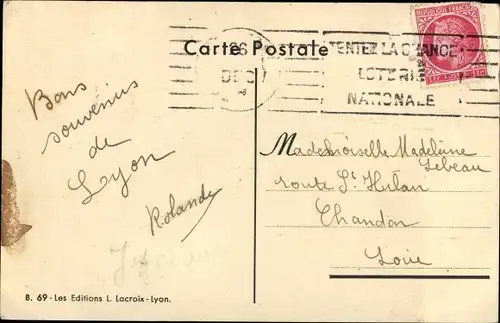 Carte Postale
26
DEC
TENTEZ LA CHANCE
LOTERIE
NATIONALE
Bons
souvenirs
de
Lyon
Rolande
Mademoiselle Madeleine
Lebeau
route St Hilan
Chandon
Loire
B. 69 - Les Editions L. Lacroix - Lyon.